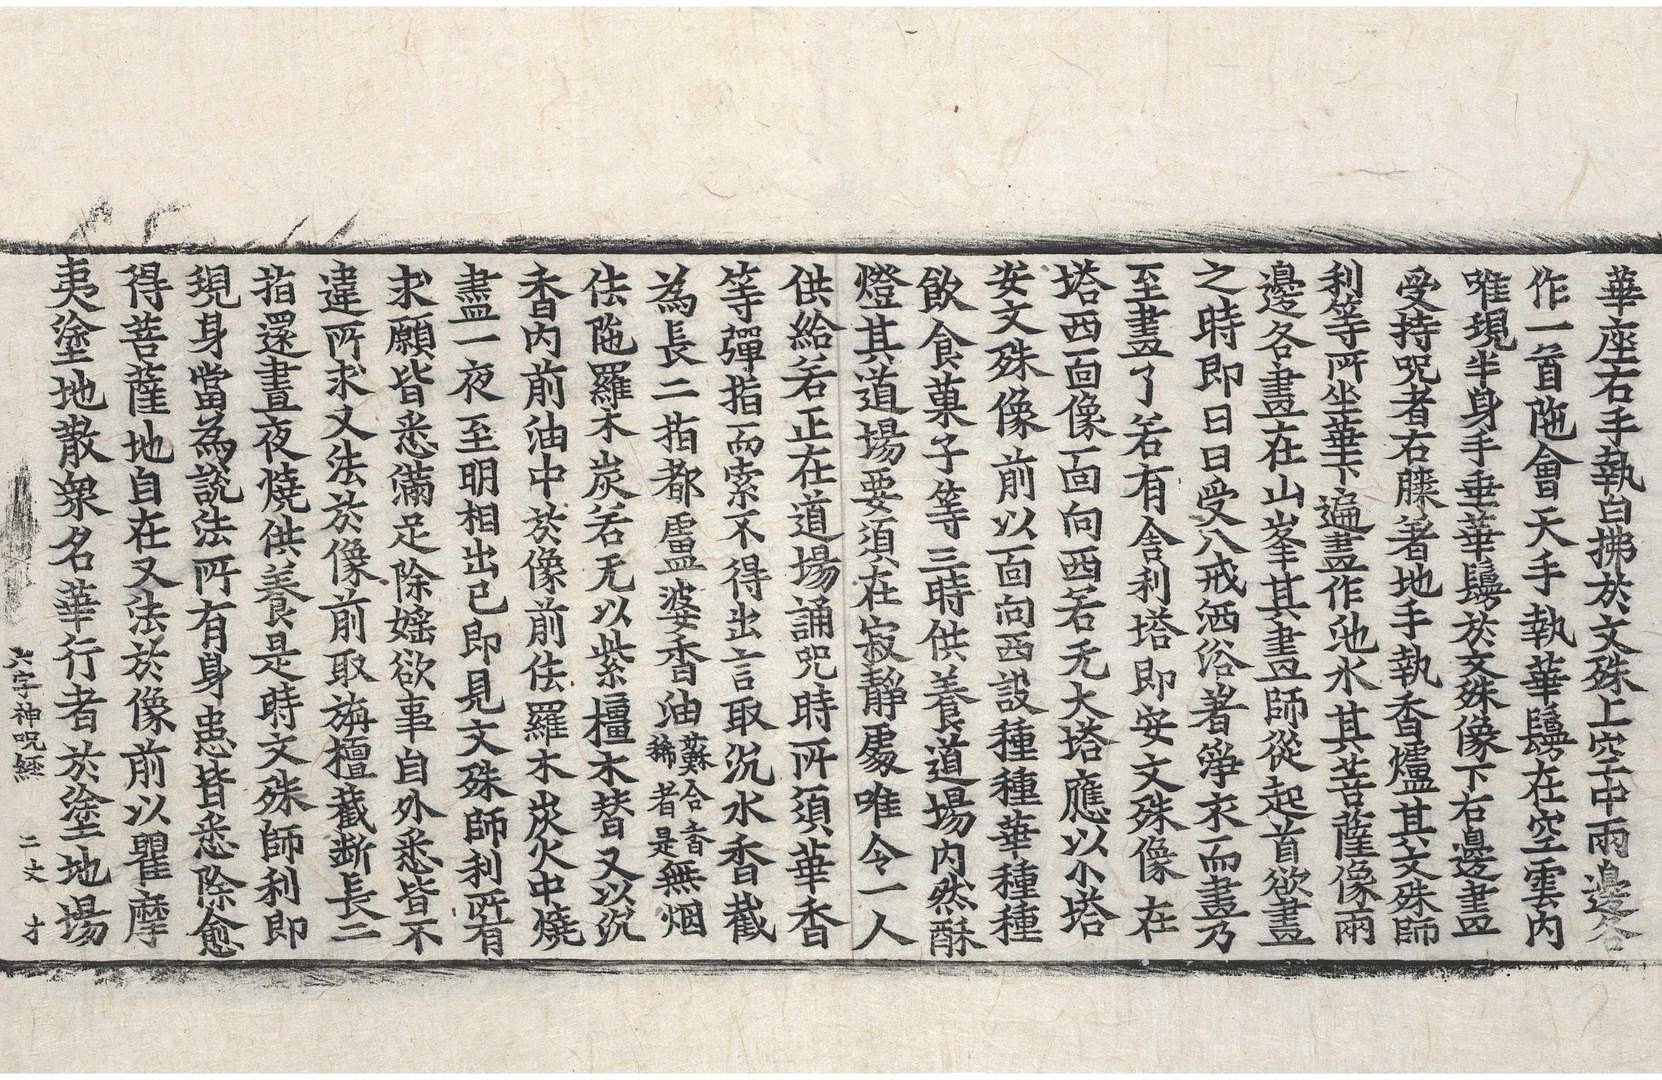 華座右手執白拂於文殊上空中兩邊各
作一首陁會天手執華鬘在空雲內
唯現半身手垂華鬘於文殊像下右邊畫
受持呪者右膝著地手執香爐其文殊師
利等所坐華下遍畫作池水其菩薩像兩
邊各畫在山峯其畫師從起首欲畫
之時即日日受八戒洒浴著淨衣而畫乃
至畫了若有舍利塔即安文殊像在
塔西面像面向西若无大塔應以小塔
安文殊像前以面向西設種種華種種
飲食菓子等三時供養道場內然酥
燈其道場要須在寂靜處唯令一人
供給若正在道場誦呪時所須華香
等彈指而索不得出言取沉水香截
為長二指都盧婆香油蘇合香稀者是無烟
佉陁羅木炭若无以紫橿木替又以沉
香內前油中於像前佉羅木炭火中燒
盡一夜至明相出已即見文殊師利所有
求願皆悉滿足除婬欲事自外悉皆不
違所求又法於像前取旃檀截斷長二
指還晝夜燒供養是時文殊師利即
現身當為說法所有身患皆悉除愈
得菩薩地自在又法於像前以瞿摩
夷塗地散眾名華行者於塗地場
六字神呪經 二丈 才